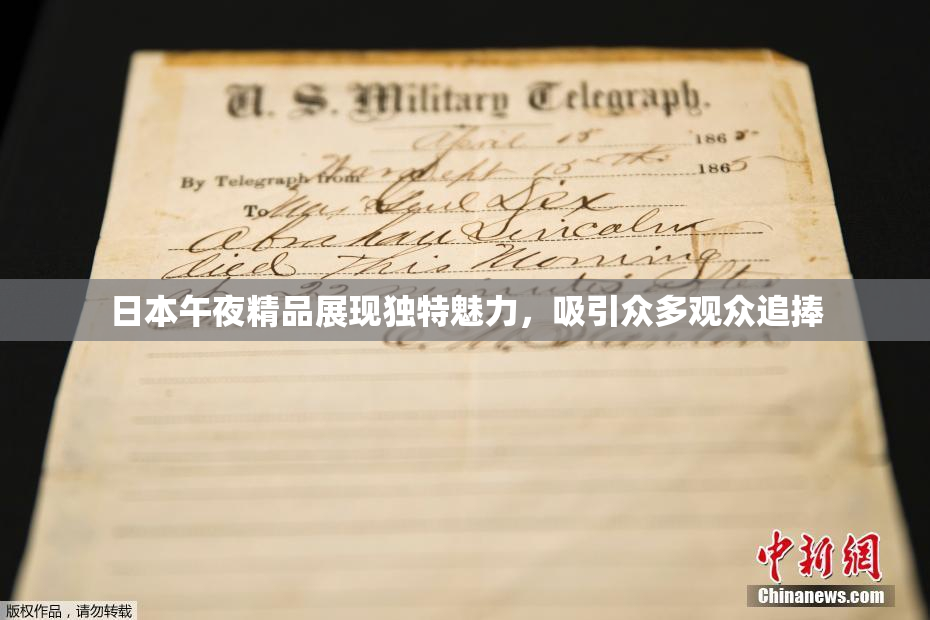 U. S. Military Telegraph.
April 15 1865
By Telegraph from War Dept 15th 1865
To Maj Genl Dix
Abraham Lincoln
died This Morning
at 22 minutes after
日本午夜精品展现独特魅力，吸引众多观众追捧
E. M. Stanton
中新网
Chinanews.com
版权作品，请勿转载